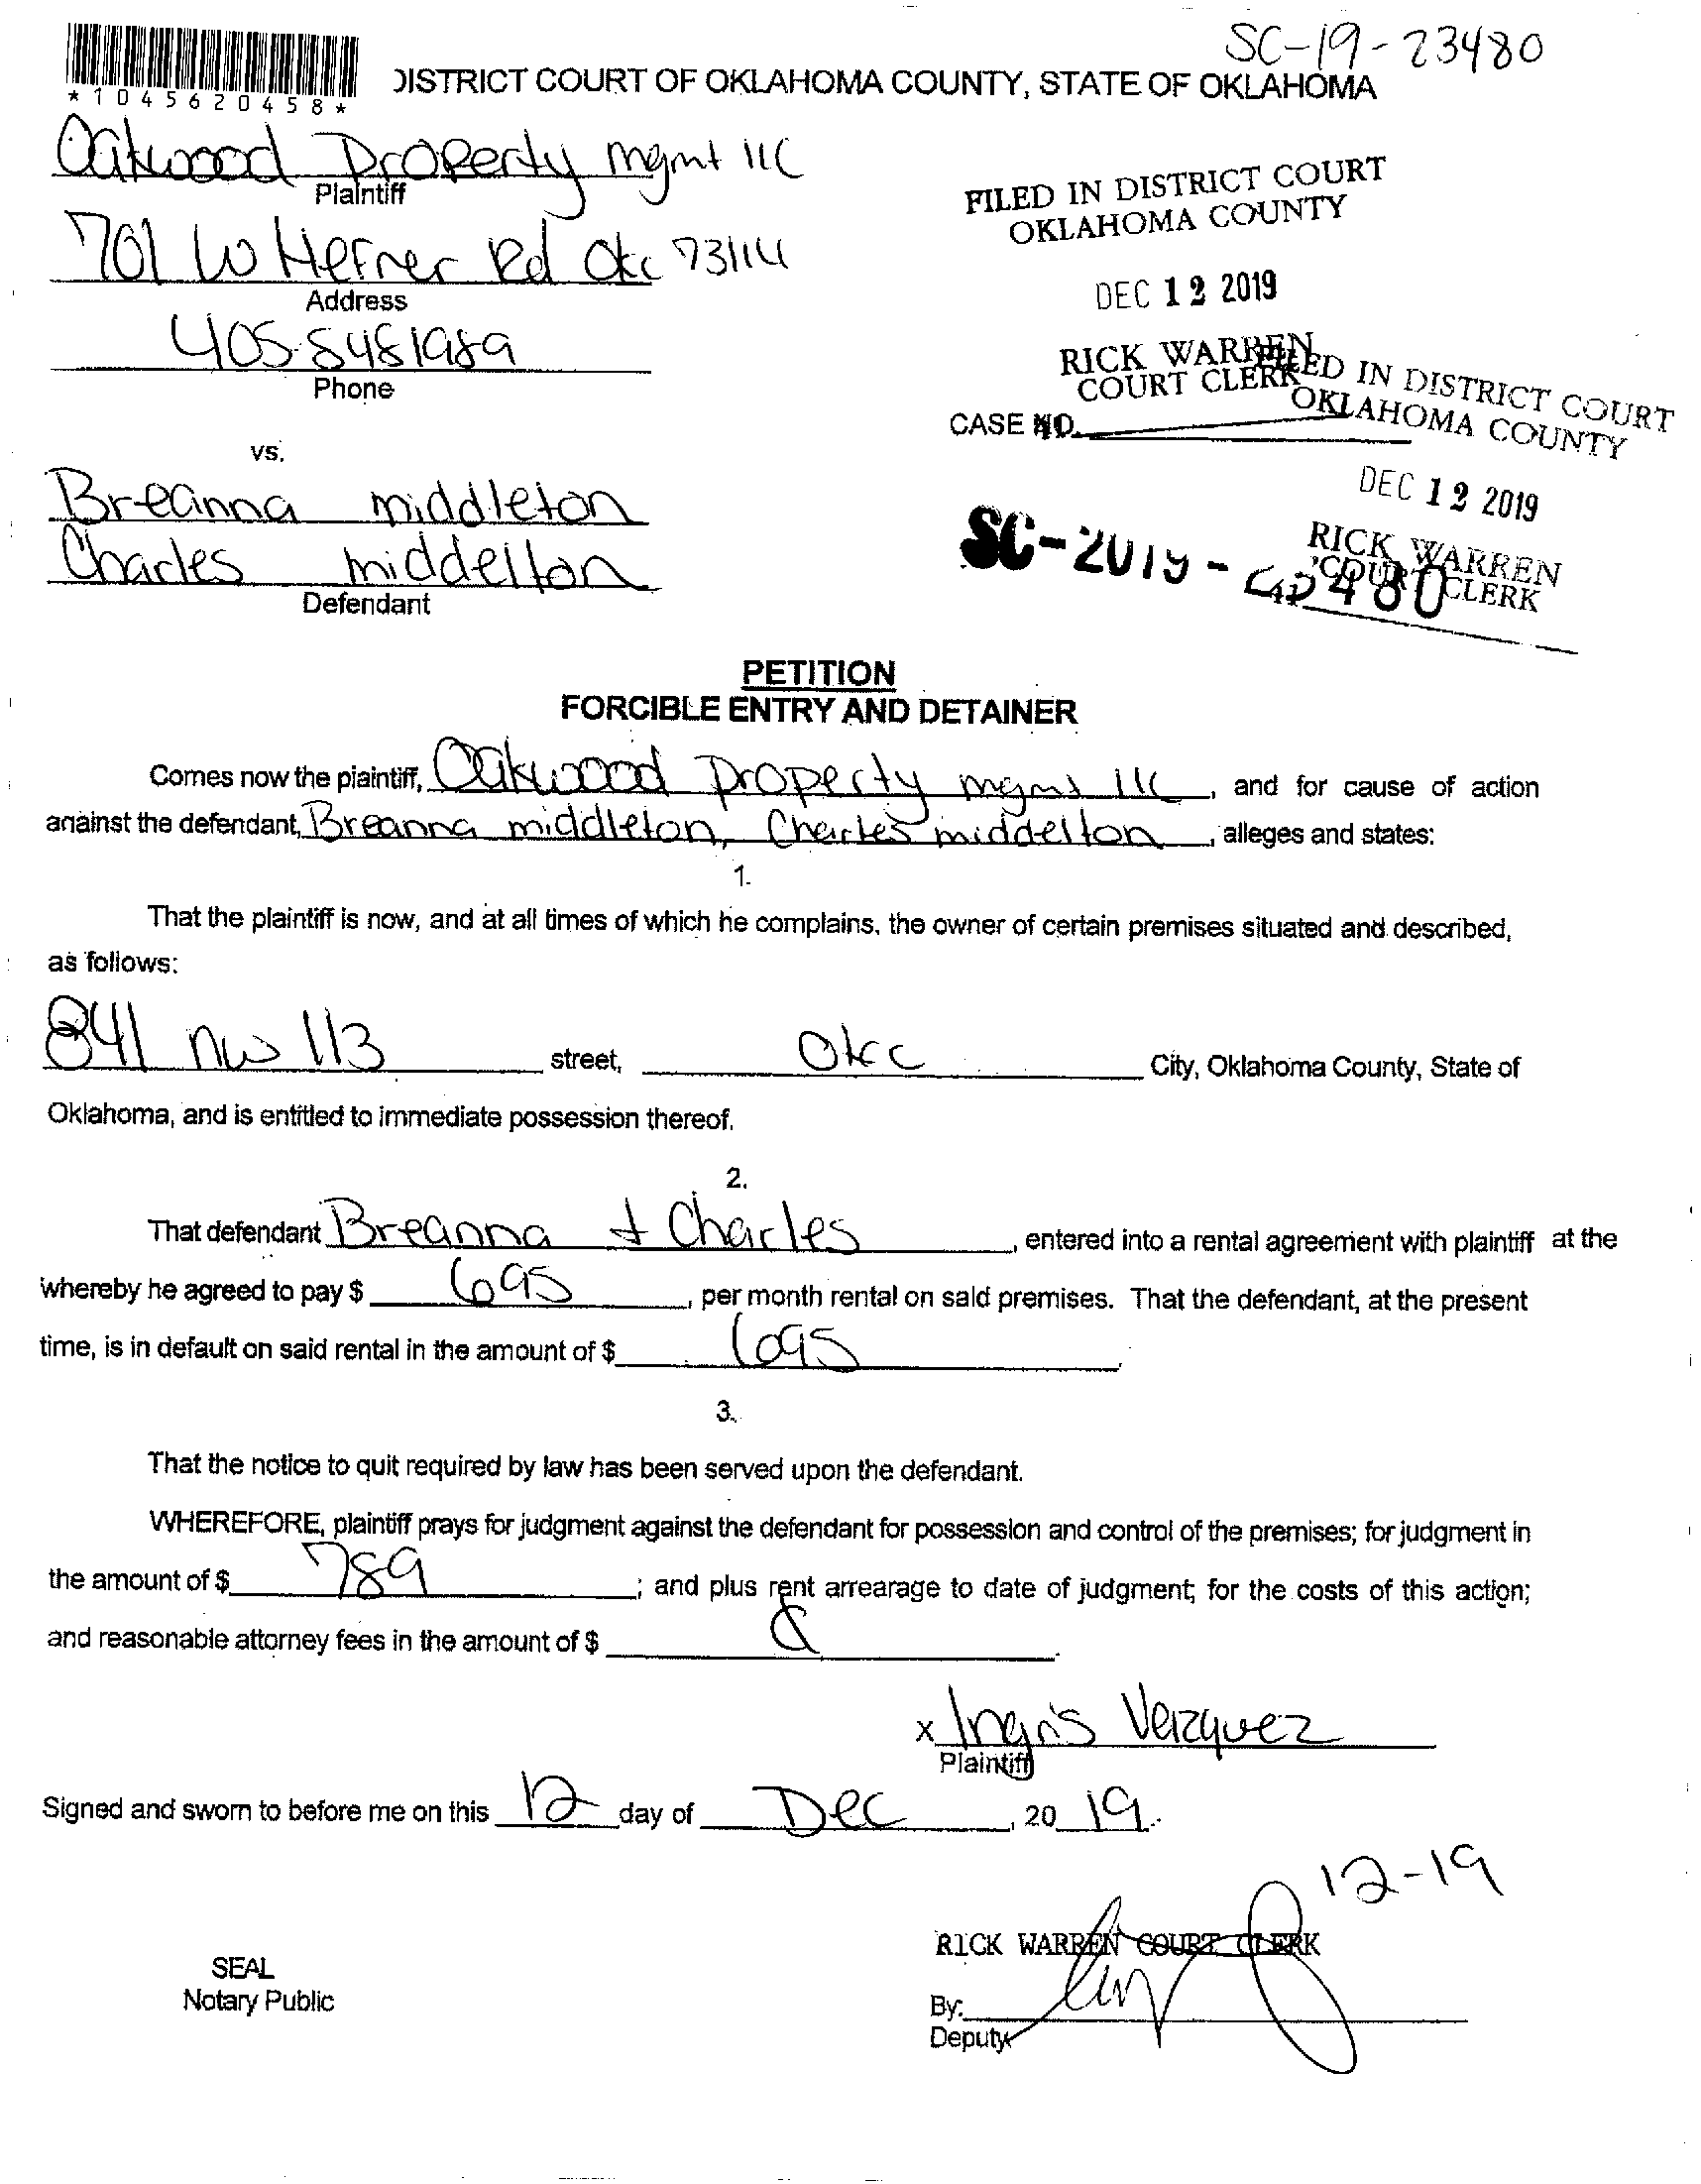 SC-19-23480
*1045620458*
DISTRICT COURT OF OKLAHOMA COUNTY, STATE OF OKLAHOMA
Oakwood Property mgmt llc
Plaintiff
701 W Hefner Rd Okc 73114
Address
405-8481989
Phone
vs.
Breanna middleton
Charles middelton
Defendant
FILED IN DISTRICT COURT
OKLAHOMA COUNTY
DEC 12 2019
RICK WARREN
COURT CLERK
CASE NO.
FILED IN DISTRICT COURT
OKLAHOMA COUNTY
DEC 12 2019
RICK WARREN
COURT CLERK
SC-2019-23480
PETITION
FORCIBLE ENTRY AND DETAINER
Comes now the plaintiff, Oakwood property mgmt llc, and for cause of action
against the defendant, Breanna middleton, Charles middelton, alleges and states:
1.
That the plaintiff is now, and at all times of which he complains, the owner of certain premises situated and described,
as follows:
841 nw 113 street, Okc City, Oklahoma County, State of
Oklahoma, and is entitled to immediate possession thereof.
2.
That defendant Breanna + Charles, entered into a rental agreement with plaintiff at the
whereby he agreed to pay $ 695, per month rental on said premises. That the defendant, at the present
time, is in default on said rental in the amount of $ 695
3.
That the notice to quit required by law has been served upon the defendant.
WHEREFORE, plaintiff prays for judgment against the defendant for possession and control of the premises; for judgment in
the amount of $ 789; and plus rent arrearage to date of judgment; for the costs of this action;
and reasonable attorney fees in the amount of $
x Ingris Vazquez
Plaintiff
Signed and sworn to before me on this 12 day of Dec, 20 19.
12-19
RICK WARREN COURT CLERK
SEAL
Notary Public
By:
Deputy